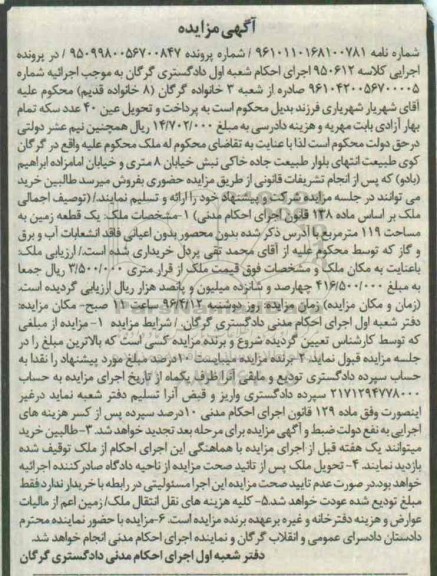 آگهی مزایده
شماره نامه ۹۶۱۰۱۱۰۱۶۸۱۰۰۷۸۱ / شماره پرونده ۹۵۰۹۹۸۰۰۵۶۷۰۰۸۴۷ / در پرونده
اجرایی کلاسه ۹۵۰۶۱۲ اجرای احکام شعبه اول دادگستری گرگان به موجب اجرائیه شماره
۹۶۱۰۴۲۰۰۵۶۷۰۰۰۰۵ صادره از شعبه ۳ خانواده گرگان (۸ خانواده قدیم) محکوم علیه
آقای شهریار شهریاری فرزند بدیل محکوم است به پرداخت و تحویل عین ۴۰ عدد سکه تمام
بهار آزادی بابت مهریه و هزینه دادرسی به مبلغ ۱۴/۷۰۲/۰۰۰ ریال همچنین نیم عشر دولتی
درحق دولت محکوم است لذا با عنایت به تقاضای محکوم له ملک محکوم علیه واقع در گرگان
کوی طبیعت انتهای بلوار طبیعت جاده خاکی نبش خیابان ۸ متری و خیابان امامزاده ابراهیم
(یادو) که پس از انجام تشریفات قانونی از طریق مزایده حضوری بفروش میرسد طالبین خرید
می توانند در جلسه مزایده شرکت و پیشنهاد خود را ارائه و تسلیم نمایند./ (توصیف اجمالی
ملک بر اساس ماده ۱۳۸ قانون اجرای احکام مدنی) ۱-مشخصات ملک: یک قطعه زمین به
مساحت ۱۱۹ مترمربع با آدرس ذکر شده بدون محصور بدون اعیانی فاقد انشعابات آب و برق
و گاز که توسط محکوم علیه از آقای محمد تقی پردل خریداری شده است./ ارزیابی ملک:
باعنایت به مکان ملک و مشخصات فوق قیمت ملک از قرار متری ۳/۵۰۰/۰۰۰ ریال جمعا
به مبلغ ۴۱۶/۵۰۰/۰۰۰ چهارصد و شانزده میلیون و پانصد هزار ریال ارزیابی گردیده است.
(زمان و مکان مزایده) زمان مزایده: روز دوشنبه ۹۶/۴/۱۲ ساعت ۱۱ صبح- مکان مزایده:
دفتر شعبه اول اجرای احکام مدنی دادگستری گرگان. / شرایط مزایده ۱-مزایده از مبلغی
که توسط کارشناس تعیین گردیده شروع و برنده مزایده کسی است که بالاترین مبلغ را در
جلسه مزایده قبول نماید. ۲-برنده مزایده میبایست ۱۰درصد مبلغ مورد پیشنهاد را نقدا به
حساب سپرده دادگستری تودیع و مابقی آنرا ظرف یکماه از تاریخ اجرای مزایده به حساب
۲۱۷۱۲۹۴۷۷۸۰۰۰ سپرده دادگستری واریز و قبض آنرا تسلیم دفتر شعبه نماید درغیر
اینصورت وفق ماده ۱۲۹ قانون اجرای احکام مدنی ۱۰درصد سپرده پس از کسر هزینه های
اجرایی به نفع دولت ضبط و آگهی مزایده برای مرحله بعد تجدید خواهد شد. ۳-طالبین خرید
میتوانند یک هفته قبل از اجرای مزایده با هماهنگی این اجرای احکام از ملک توقیف شده
بازدید نمایند. ۴- تحویل ملک پس از تائید صحت مزایده از ناحیه دادگاه صادرکننده اجرائیه
خواهد بود.در صورت عدم تایید صحت مزایده این اجرا مسئولیتی در رابطه با خریدار ندارد فقط
مبلغ تودیع شده عودت خواهد شد.۵- کلیه هزینه های نقل انتقال ملک/ زمین اعم از مالیات
عوارض و هزینه دفترخانه و غیره برعهده برنده مزایده است. ۶-مزایده با حضور نماینده محترم
دادستان دادسرای عمومی و انقلاب گرگان و نماینده اجرای احکام مدنی انجام خواهد شد.
دفتر شعبه اول اجرای احکام مدنی دادگستری گرگان